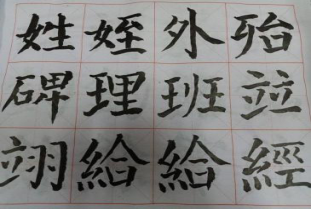 姓姪外殆
碑理班竝
翊給給經